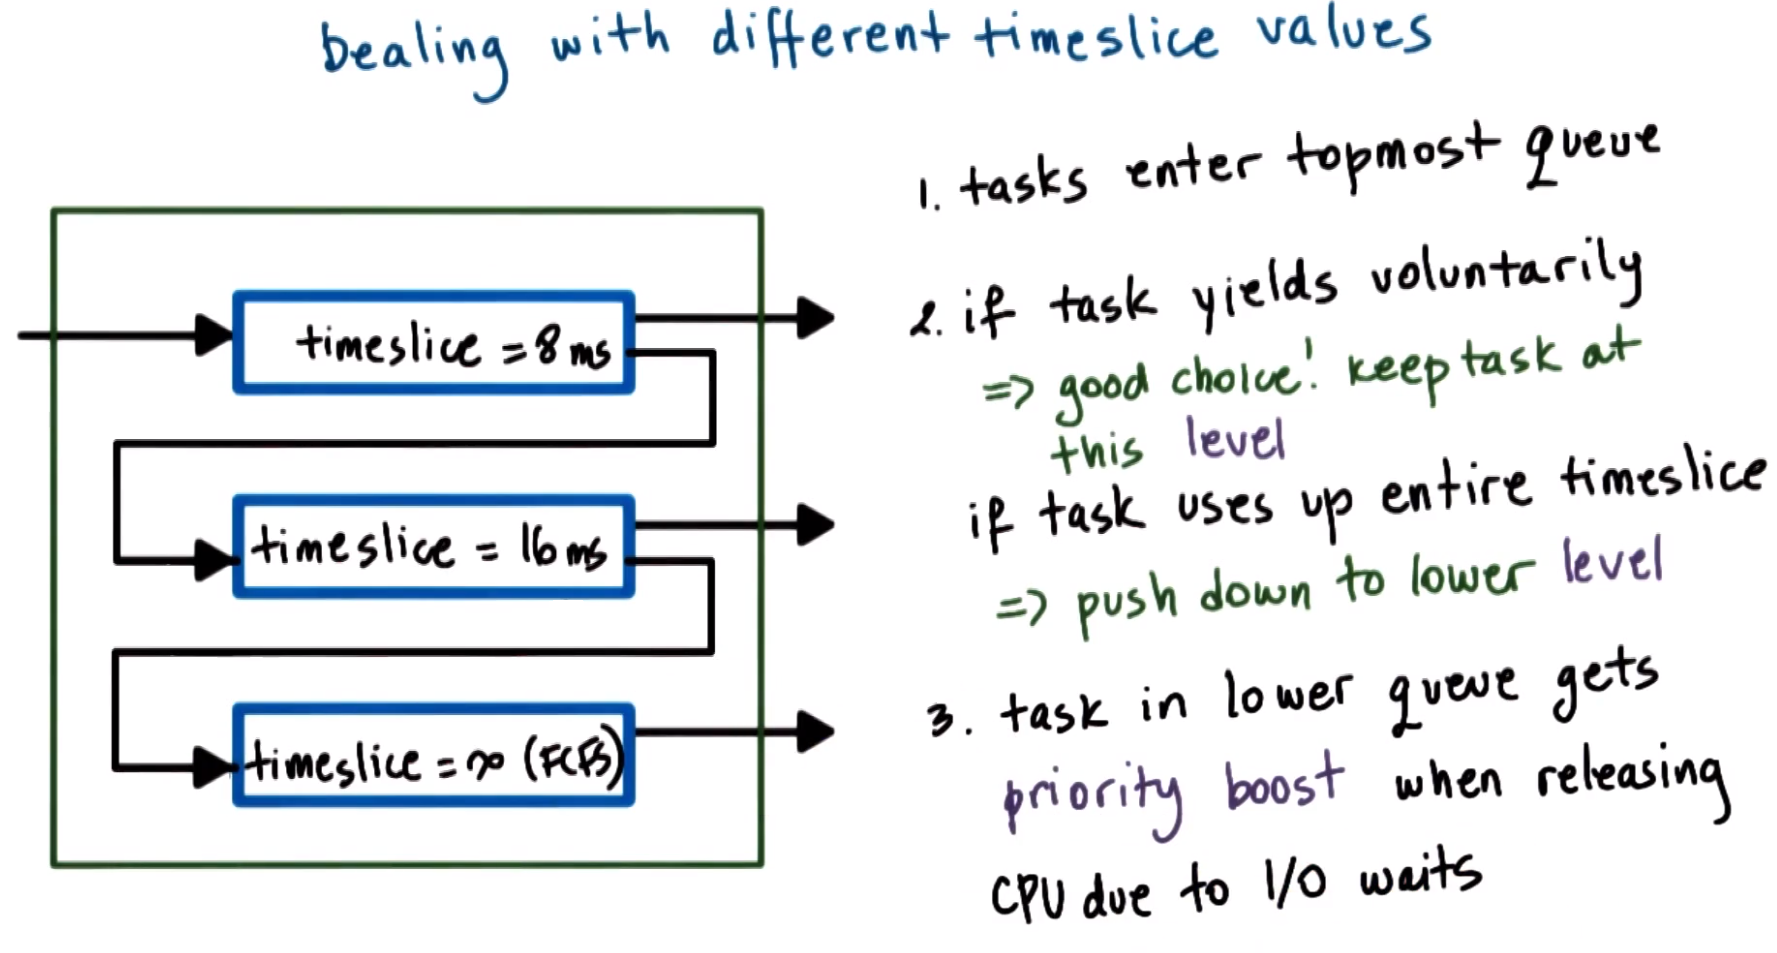 Dealing with different timeslice values
timeslice = 8 ms
timeslice = 16 ms
timeslice = ∞ (FCFS)
1. tasks enter topmost queue
2. if task yields voluntarily
=> good choice! keep task at
this level
if task uses up entire timeslice
=> push down to lower level
3. task in lower queue gets
priority boost when releasing
CPU due to I/O waits